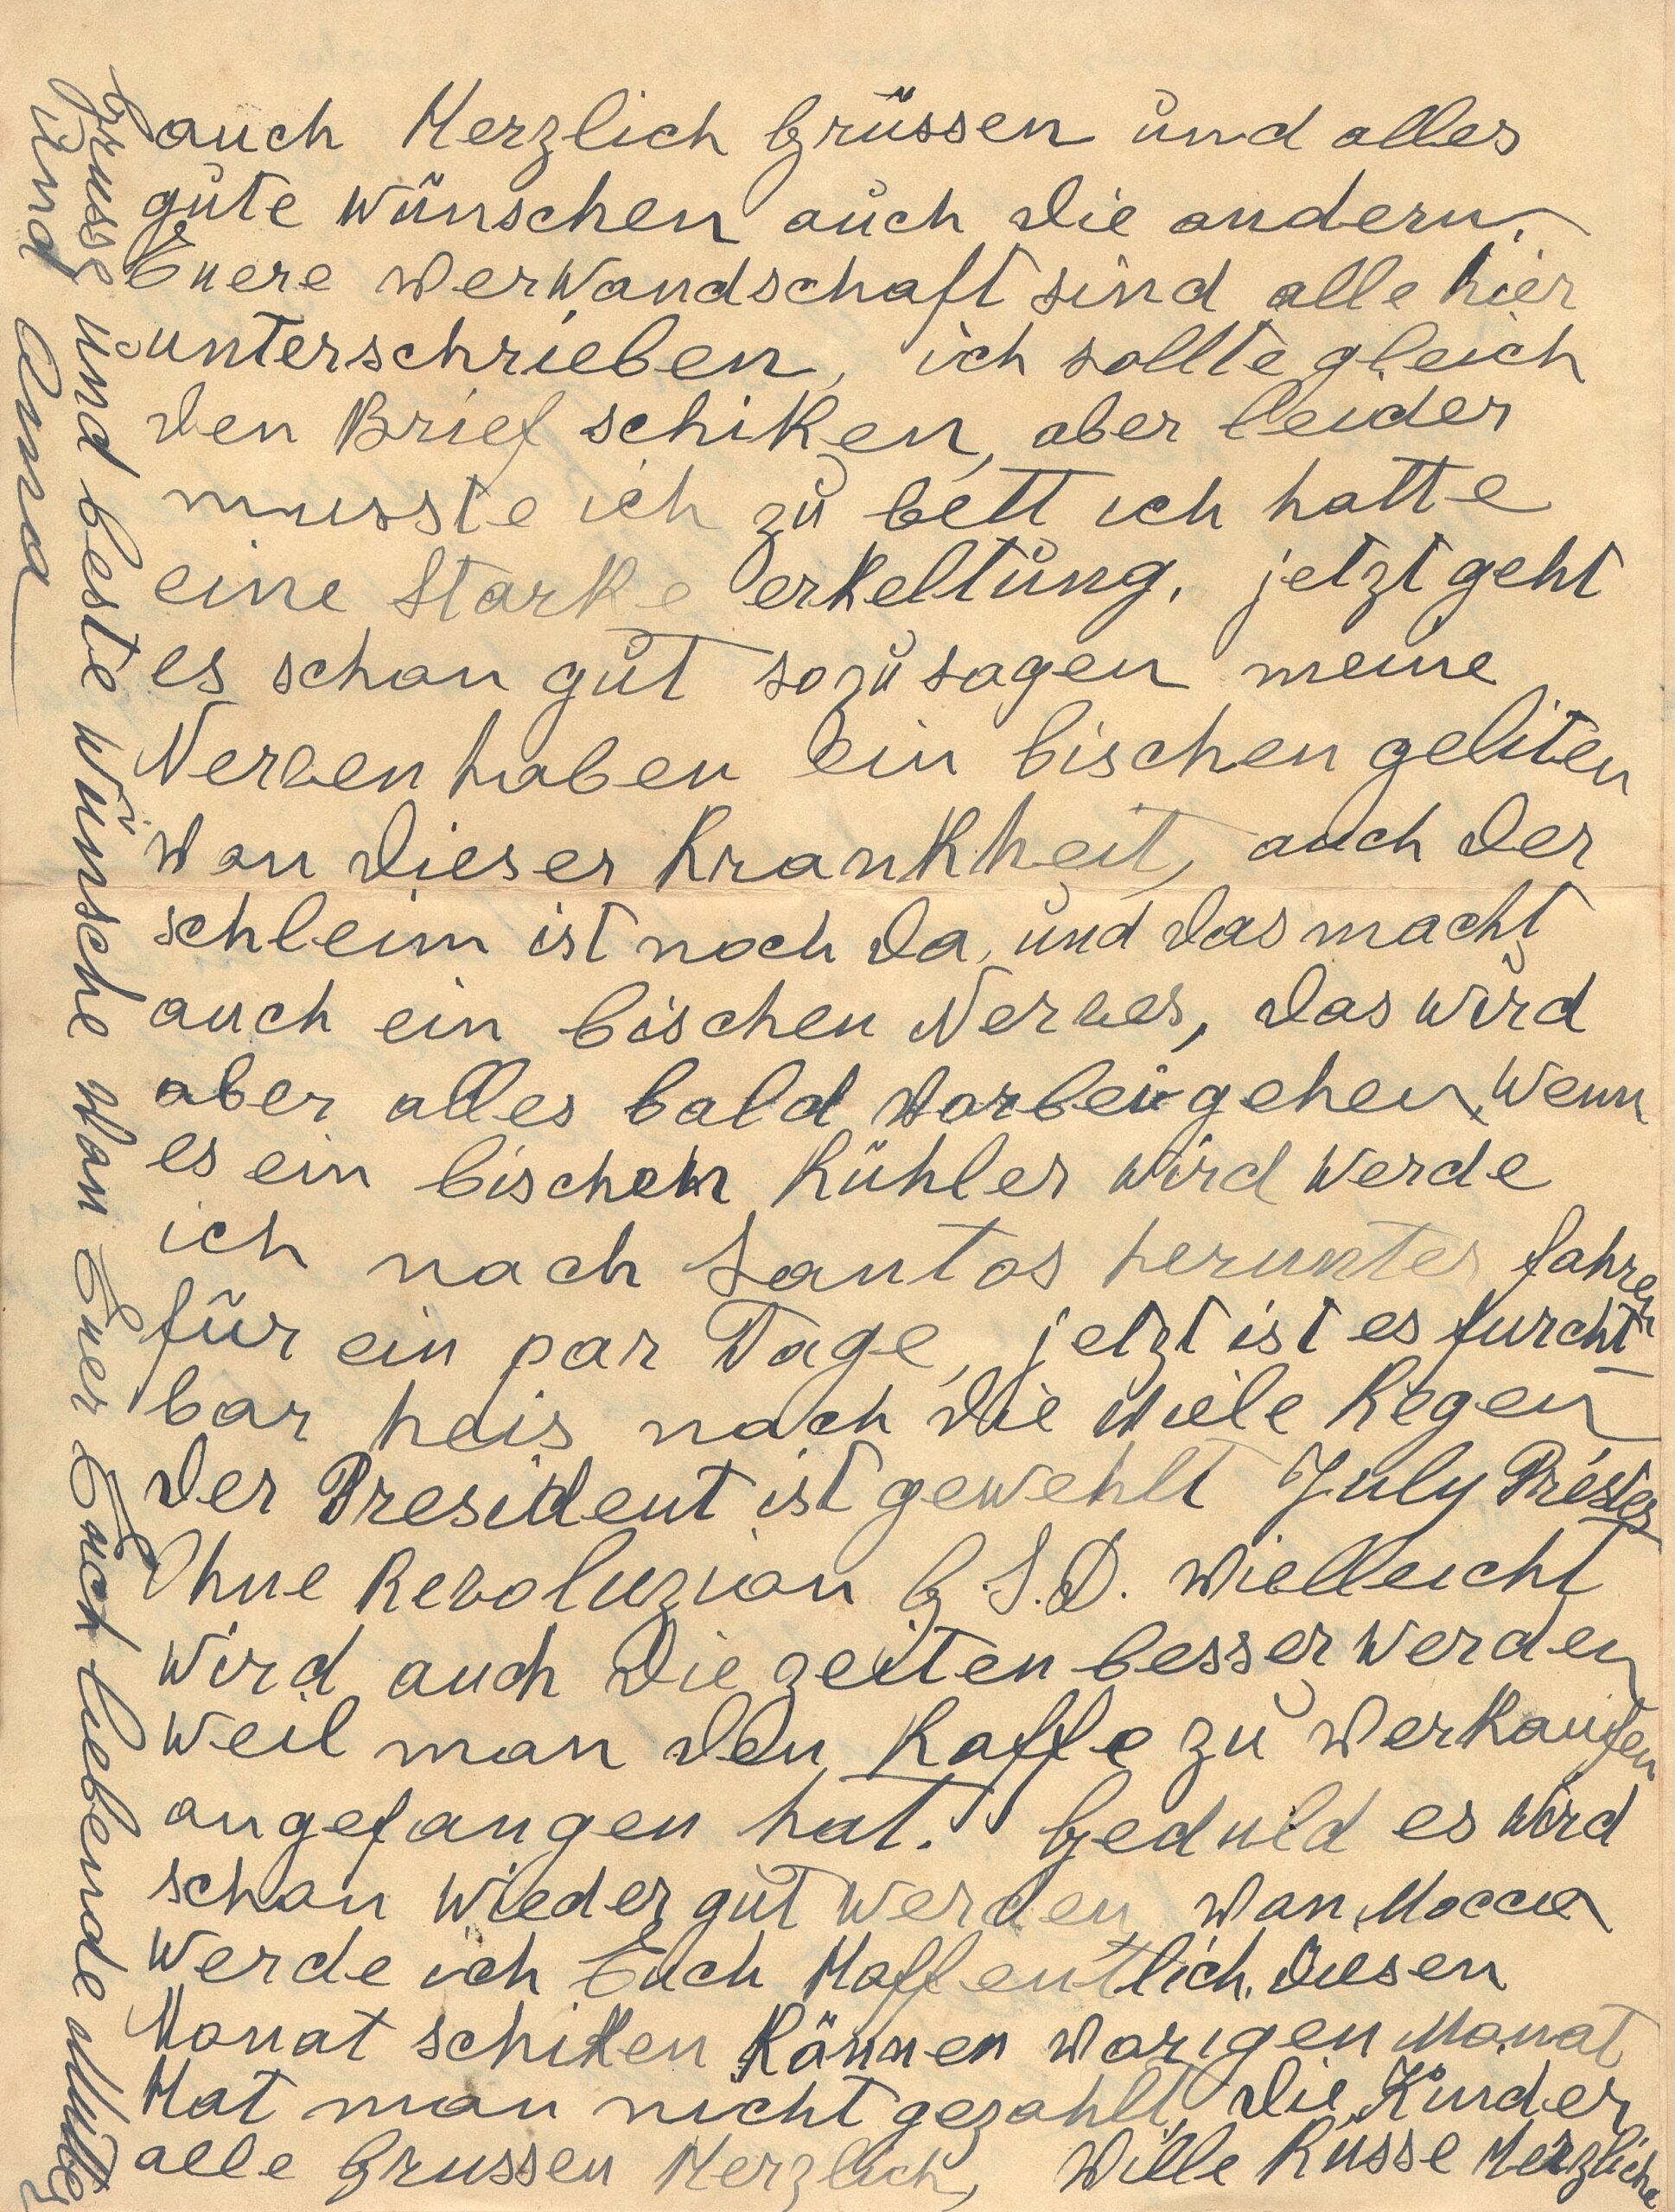 auch Herzlich Grüssen und alles
gute wünschen auch die andern.
Euere Verwandschaft sind alle hier
unterschrieben, ich sollte gleich
den Brief schiken, aber leider
musste ich zu bett ich hatte
eine Starke erkeltung. jetzt geht
es schon gut sozusagen meine
Nerven haben ein bischen geliten
von dieser Krankheit, auch der
schleim ist noch da, und das macht
auch ein bischen Nerves, das wird
aber alles bald vorbeigehen, wenn
es ein bischen Kühler wird werde
ich nach Santos herunter fahren
für ein par Tage, jetzt ist es furcht
bar heis nach die viele Regen
der President ist gewehlt July Prestes
Ohne Revoluzion G.S.D. vielleicht
wird auch die zeiten besser werden
weil man den Kaffe zu verkaufen
angefangen hat. Geduld es wird
schon wieder gut werden von Mocca
werde ich Euch Hoffentlich diesen
Monat schiken Können vorigen Monat
Hat man nicht gezahlt, die Kinder
alle Grussen Herzlich,Ville Küsse Herzliche
Grusse und beste Wünsche von Euer Euch liebende Mutter
und Anna